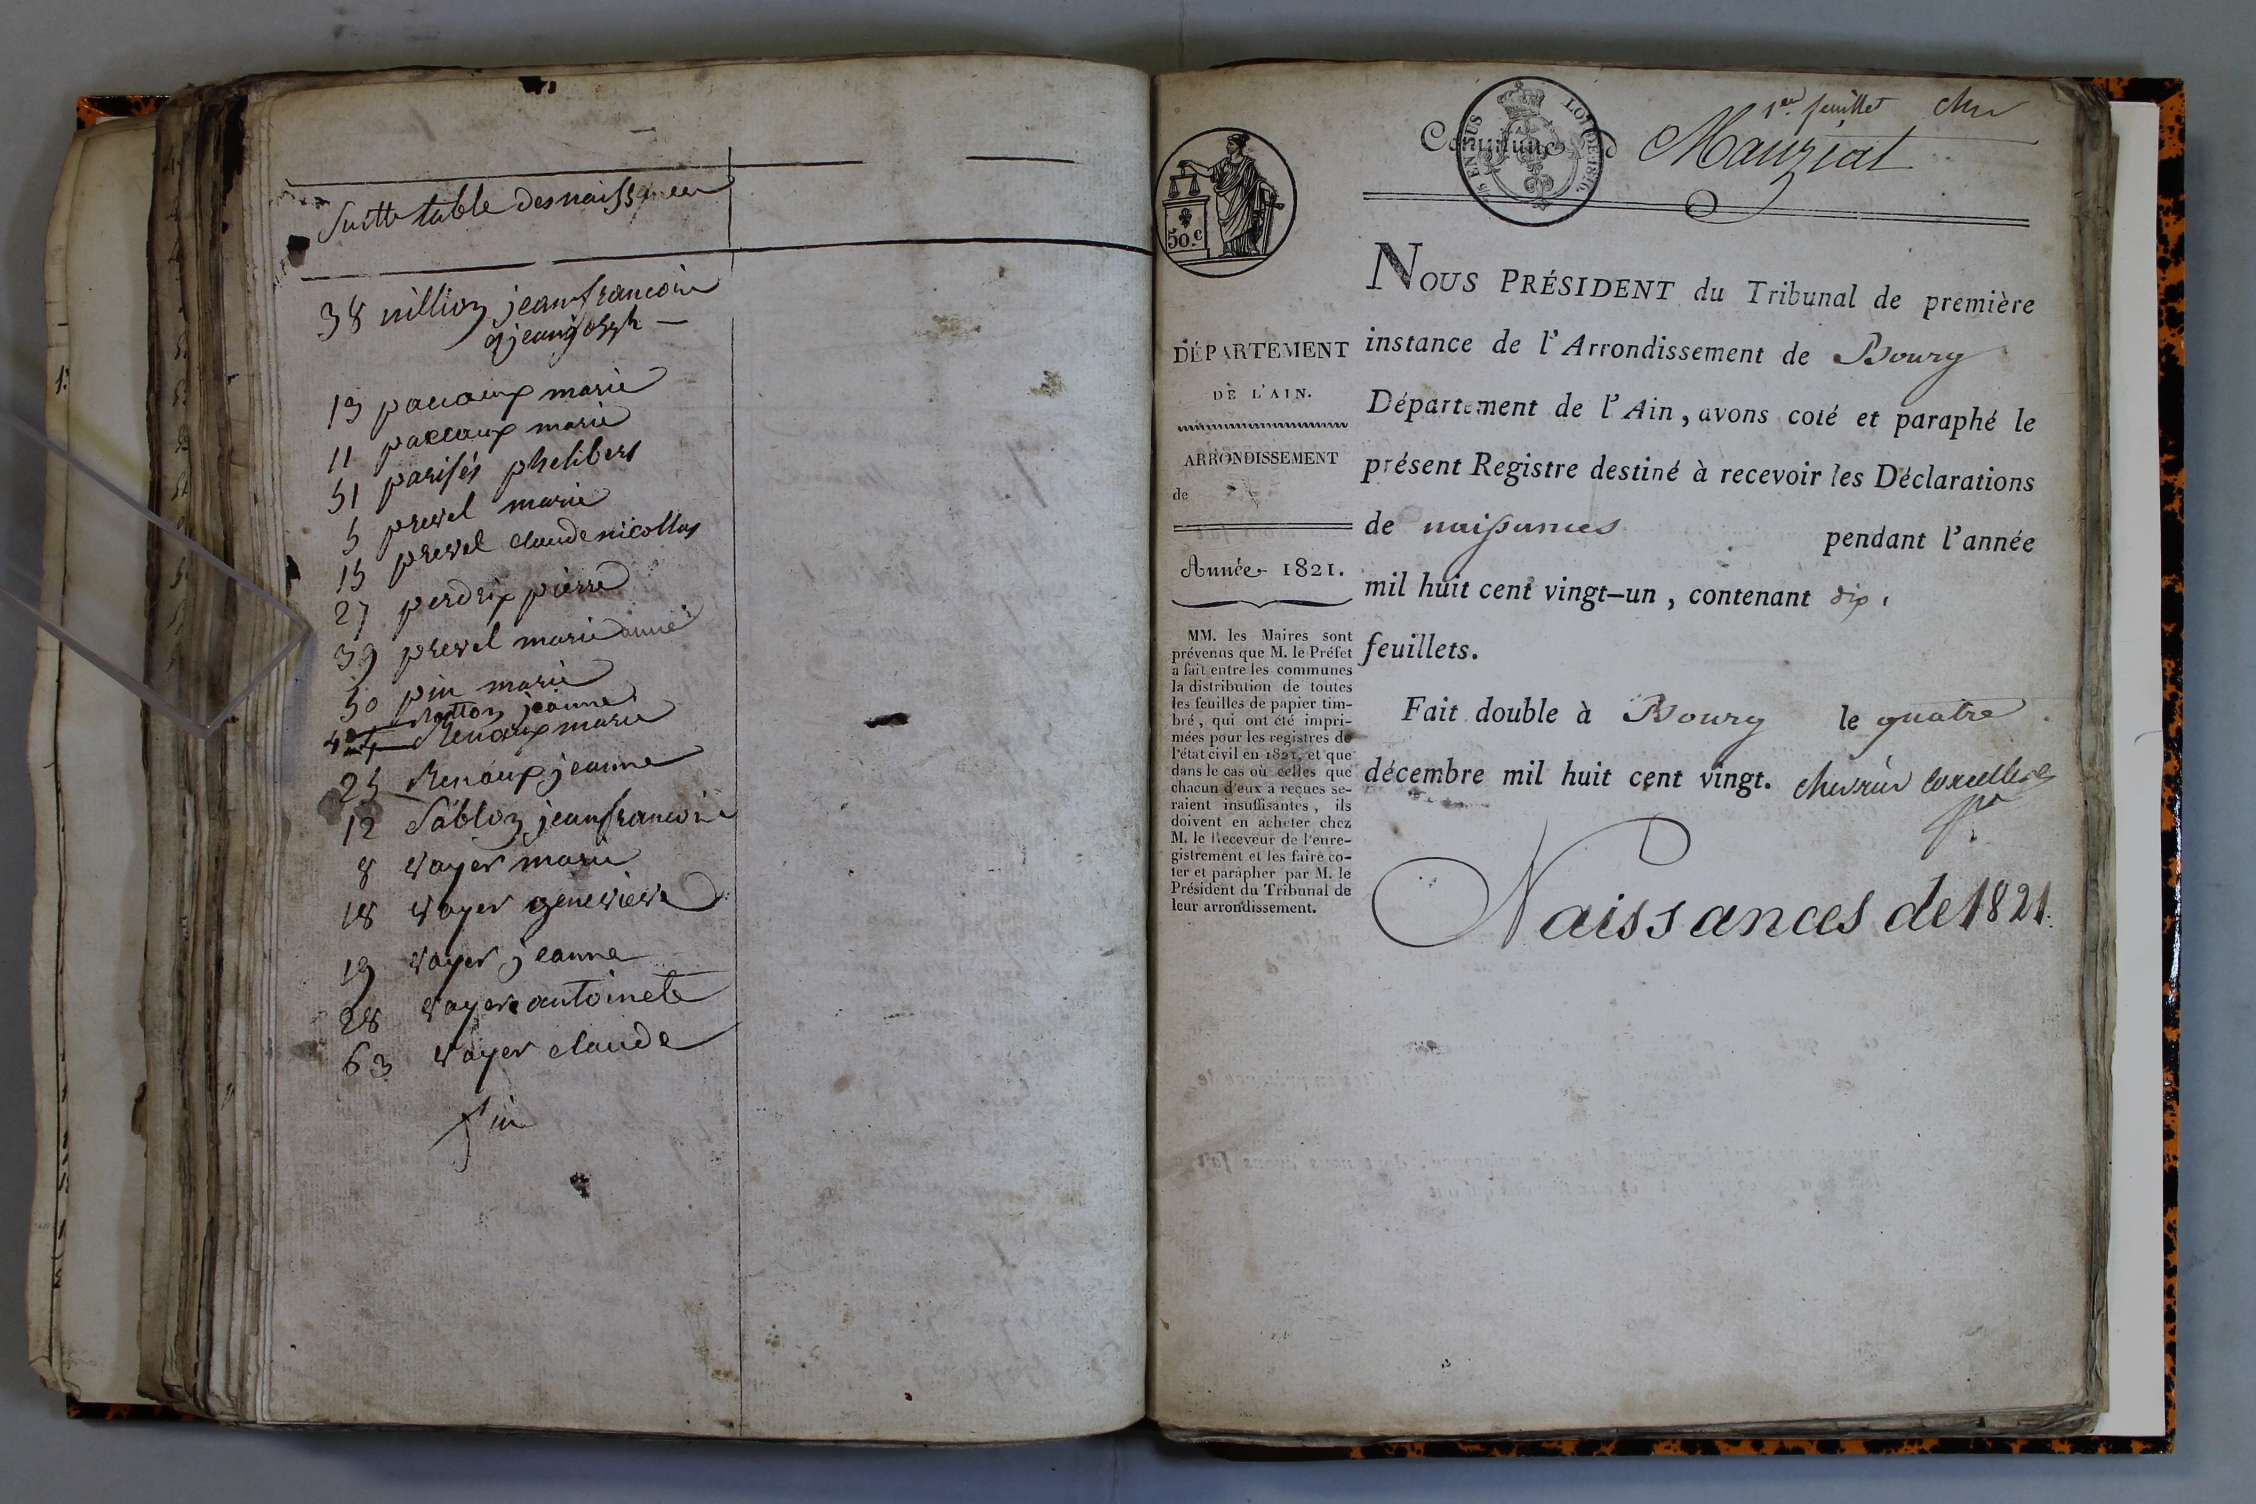 Suitte table des naissances
38 nillion jean francois
& jean josph —
13 pauaux marie
11 paccaux marie
51 parisés phelibert
5 prevel marie
15 prevel claude nicollas
27 perdrix pierre
39 prevel marie anne
50 pin marie
Notton jeanne
Renoux marie
25 Renoux jeanne
12 Sablon jean francois
8 vayer marie
18 vayer genevieve
19 vayer jeanne
28 vayer antoinete
63 vayer claude
fin
1er feuillet chr
Commune d Manziat
¼ EN SUS LOI DE 1816.
50.c
DÉPARTEMENT
DE L'AIN.
ARRONDISSEMENT
de
Année 1821.
MM. les Maires sont
prévenus que M. le Préfet
a fait entre les communes
la distribution de toutes
les feuilles de papier tim-
bré, qui ont été impri-
mées pour les registres de
l'état civil en 1821, et que
dans le cas où celles que
chacun d'eux a reçues se-
raient insuffisantes, ils
doivent en acheter chez
M. le Receveur de l'enre-
gistrement et les faire co-
ter et parapher par M. le
Président du Tribunal de
leur arrondissement.
NOUS PRÉSIDENT du Tribunal de première
instance de l'Arrondissement de Bourg
Département de l'Ain, avons coté et paraphé le
présent Registre destiné à recevoir les Déclarations
de naissances pendant l'année
mil huit cent vingt-un, contenant dix
feuillets.
Fait double à Bourg le quatre
décembre mil huit cent vingt. chevrier corcelles
Naissances de 1821.